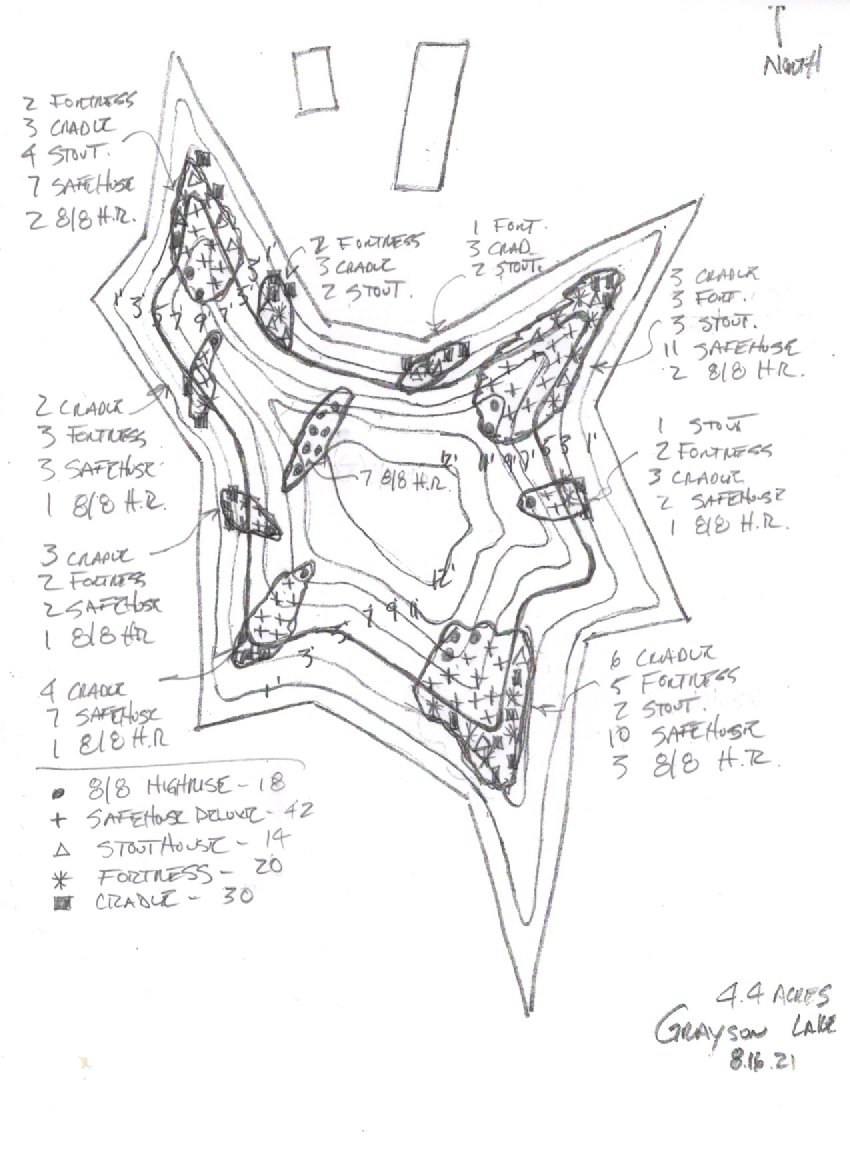 NORTH
2 FORTRESS
3 CRADLE
4 STOUT.
7 SAFEHOUSE
2 8/8 H.R.
2 FORTRESS
3 CRADLE
2 STOUT.
1 FORT.
3 CRAD.
2 STOUT.
3 CRADLE
3 FORT.
3 STOUT.
11 SAFEHOUSE
2 8/8 H.R.
1'
3'
5
7
9
7'
1'
3'
2 CRADLE
3 FORTRESS
3 SAFEHOUSE
1 8/8 H.R.
1 STOUT
2 FORTRESS
3 CRADLE
2 SAFEHOUSE
1 8/8 H.R.
12'
11'
9'
7'
5
3
1'
7 8/8 H.R.
3 CRADLE
2 FORTRESS
2 SAFEHOUSE
1 8/8 H.R
12'
7
9
11'
5'
3'
1'
4 CRADLE
7 SAFEHOUSE
1 8/8 H.R
6 CRADLE
5 FORTRESS
2 STOUT.
10 SAFEHOUSE
3 8/8 H.R.
8/8 HIGHRISE - 18
SAFEHOUSE DELUXE - 42
STOUTHOUSE - 14
FORTRESS - 20
CRADLE - 30
4.4 ACRES
GRAYSON LAKE
8.16.21